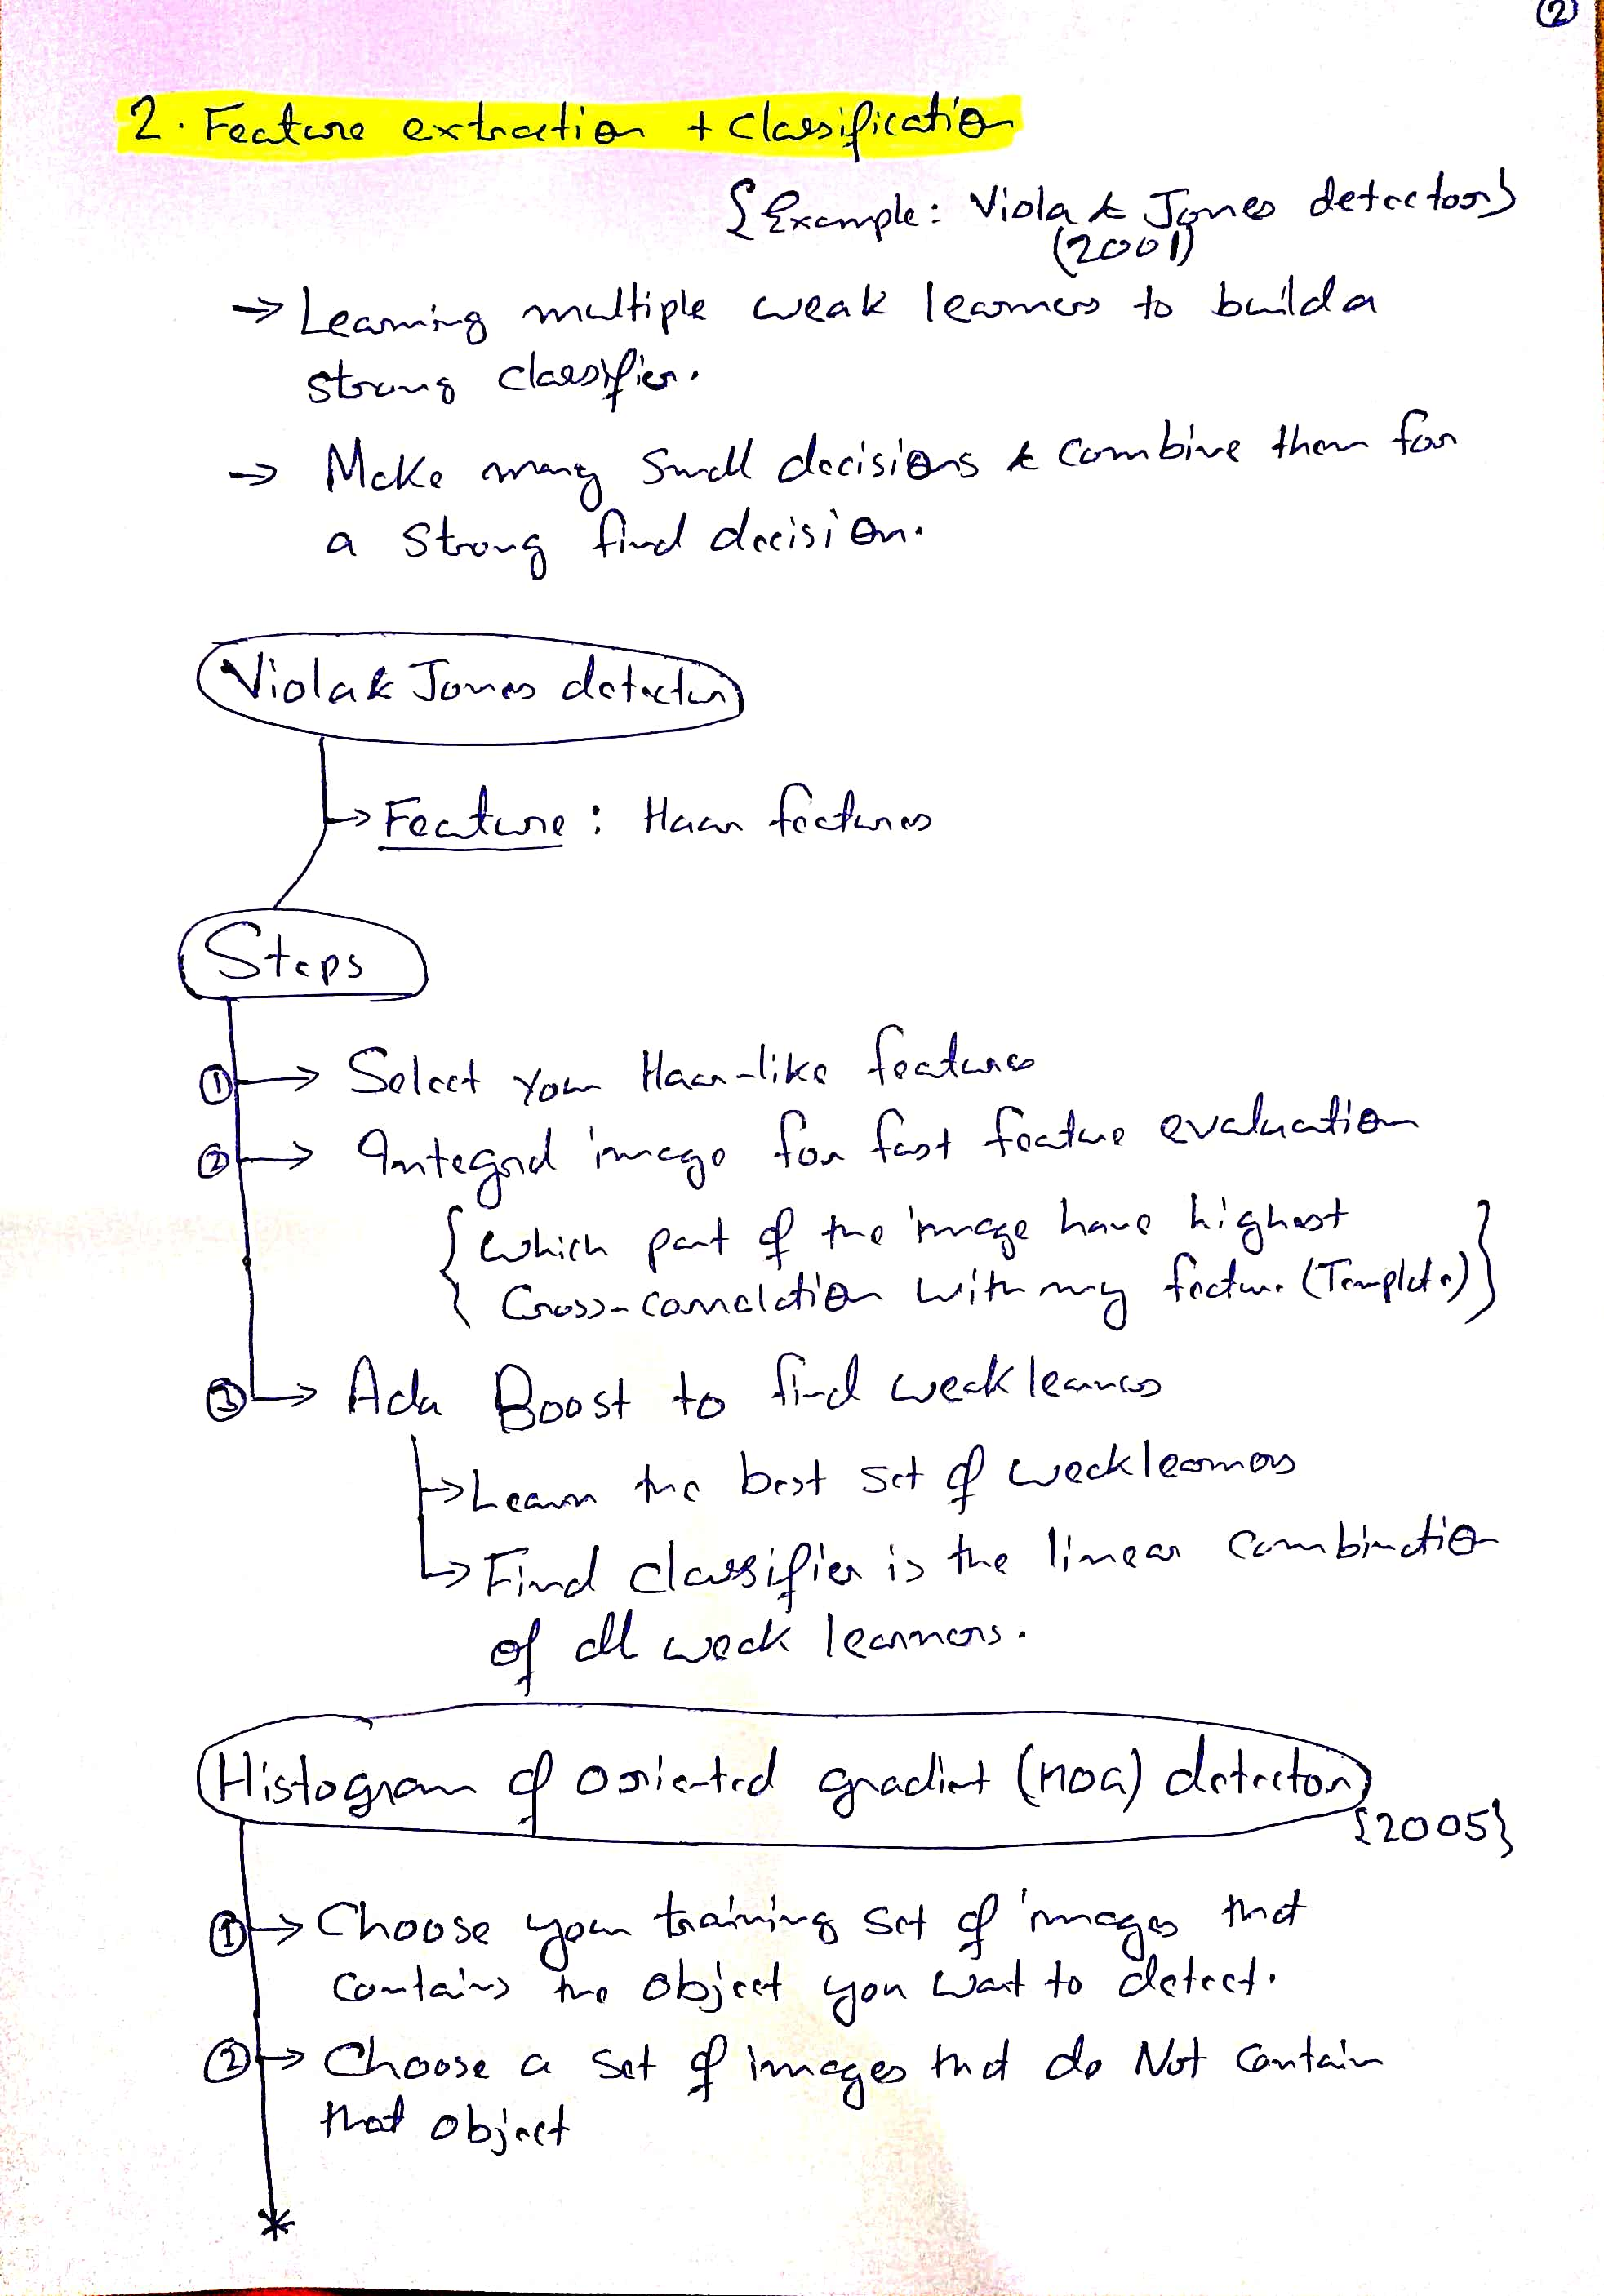 ②
2. Feature extraction + Classification
{Example: Viola & Jones detector}
(2001)
→ Learning multiple weak learners to build a
strong classifier.
→ Make many small decisions & combine them for
a strong final decision.
Viola & Jones detector
→ Feature: Haar features
Steps
① → Select your Haar-like features
② → Integral image for fast feature evaluation
{Which part of the image have highest
Cross-correlation with my feature (Template)}
③ → Ada Boost to find weak learners
→ Learn the best set of weak learners
→ Final classifier is the linear combination
of all weak learners.
Histogram of oriented gradient (HOG) detector
{2005}
① → Choose your training set of images that
contains the object you want to detect.
② → Choose a set of images that do Not contain
that object
*